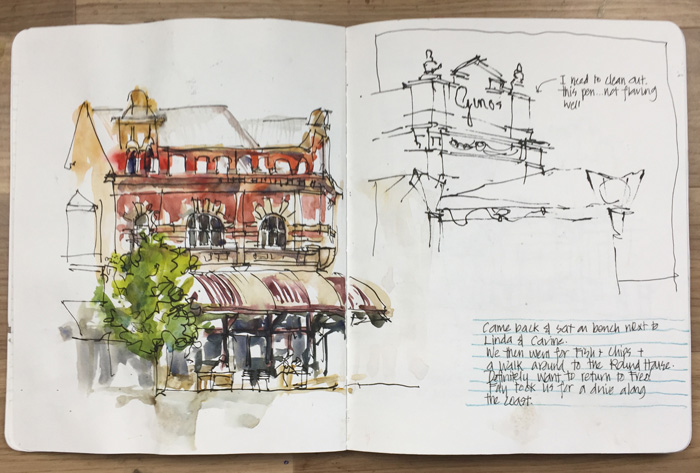 Ginos
I need to clean out
this pen...not flowing
well
Came back & sat on bench next to
Linda & Carine.
We then went for Fish & Chips +
a walk around to the Round House.
Definitely want to return to Freo
Fay took us for a drive along
the coast.